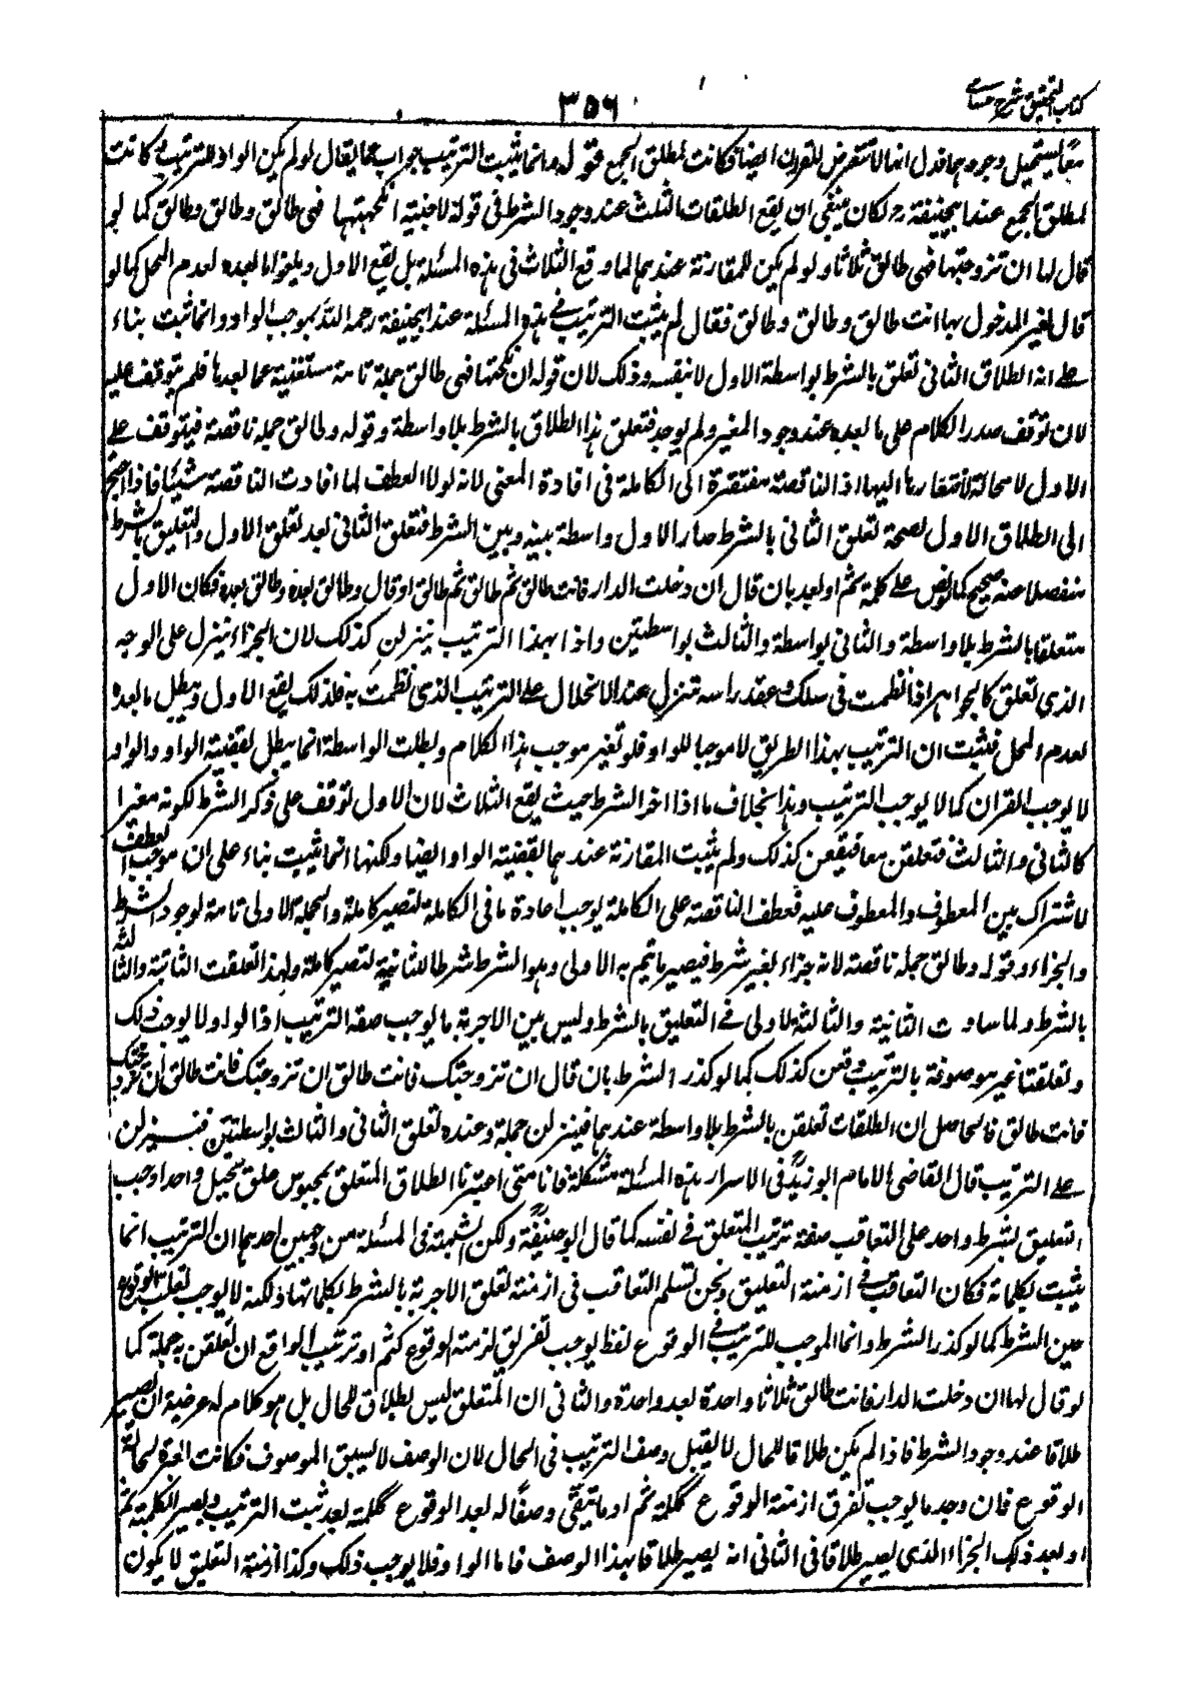 كتاب التحقيق شرح حسامى
٣٥٦
معا يستحيل وجودهما فدل انها لا تتعرض للقران ايضا فكانت لمطلق الجمع قوله وانما يثبت الترتيب جواب عما يقال لو لم يكن الواو للترتيب كانت
لمطلق الجمع عند ابيحنيفة رح لكان ينبغى ان يقع الطلقات الثلث عند وجود الشرط فى قوله لاجنبية ان نكحتها فهى طالق وطالق وطالق كما لو
قال لها ان تزوجتها فهى طالق ثلاثا ولو لم يكن للمقارنة عندهما لما وقع الثلاث فى هذه المسئلة بل يقع الاول ويلغو ما بعده لعدم المحل كما لو
قال لغير المدخول بها انت طالق وطالق وطالق فقال لم يثبت الترتيب فى هذه المسئلة عند ابيحنيفة رحمه الله بموجب الواو وانما ثبت بناء
على ان الطلاق الثانى تعلق بالشرط بواسطة الاول لا بنفسه وذلك لان قوله ان نكحتها فهى طالق جملة تامة مستغنية عما بعدها فلم يتوقف عليه
لان توقف صدر الكلام على ما بعده عند وجود المغير ولم يوجد فتعلق هذا الطلاق بالشرط بلا واسطة وقوله وطالق جملة ناقصة فيتوقف على
الاول لا محالة لافتقارها اليها اذ الناقصة مفتقرة الى الكاملة فى افادة المعنى لانه لولا العطف لما افادت الناقصة شيئا فاذا احتيج
الى الطلاق الاول لصحة تعلق الثانى بالشرط صار الاول واسطة بينه وبين الشرط فتعلق الثانى بعد تعلق الاول والتعليق بالشرط
منفصلا عنه صحيح كما لو نص على كلمة ثم او بعد بان قال ان دخلت الدار فانت طالق ثم طالق ثم طالق او قال وطالق بعده وطالق بعده فكان الاول
متعلقا بالشرط بلا واسطة والثانى بواسطة والثالث بواسطتين واذا بهذا الترتيب ينزلن كذلك لان الجزاء ينزل على الوجه
الذى تعلق كالجواهر اذا نظمت فى سلك وعقد راسه تنزل عند الانحلال على الترتيب الذى نظمت به فلذلك يقع الاول ويبطل ما بعده
لعدم المحل فثبت ان الترتيب بهذا الطريق لا موجبا للواو فلو تغير موجب هذا الكلام وبطلت الواسطة انما يبطل لقضية الواو والواو
لا يوجب القران كما لا يوجب الترتيب وهذا بخلاف ما اذا اخر الشرط حيث يقع الثلاث لان الاول توقف على ذكر الشرط لكونه مغيرا
كالثانى والثالث فتعلقن معا فيقعن كذلك ولم يثبت المقارنة عندهما بقضية الواو ايضا ولكنها انما ثبتت بناء على ان موجب العطف
الاشتراك بين المعطوف والمعطوف عليه فعطف الناقصة على الكاملة يوجب اعادة ما فى الكاملة لتصير كاملة والجملة الاولى تامة لوجود الشرط
والجزاء وقوله وطالق جملة ناقصة لانه جزاء بغير شرط فيصير ما تتم به الاولى وهو الشرط شرطا للثانية لتصير كاملة ولهذا تعلقت الثانية والثالثة
بالشرط ولما ساوت الثانية والثالثة الاولى فى التعليق بالشرط وليس بين الاجزية ما يوجب صفة الترتيب اذ الواو لا يوجب ذلك
وتعلقتا غير موصوفة بالترتيب وقعن كذلك كما لو كذر الشرط بان قال ان تزوجتك فانت طالق ان تزوجتك فانت طالق ان تزوجتك
فانت طالق فالحاصل ان الطلقات تعلقن بالشرط بلا واسطة عندهما فينزلن جملة وعنده تعلق الثانى والثالث بواسطتين فينزلن
على الترتيب قال القاضى الامام ابو زيد فى الاسرار هذه المسئلة مشكلة فانا متى اعتبرنا الطلاق المتعلق بمحبوس علق بحبل واحد اوجب
التعليق بشرط واحد على التعاقب صفة ترتيب المتعلق فى نفسه كما قال ابو حنيفة ولكن الشبهة فى المسئلة من وجهين احدهما ان الترتيب انما
يثبت بكلماته فكان التعاقب فى ازمنة التعليق ونحن نسلم التعاقب فى ازمنة تعلق الاجزية بالشرط بكلماتها ذلكنه لا يوجب تعاقب الوقوع
حين الشرط كما لو كذر الشرط وانما الموجب للترتيب فى الوقوع لفظ يوجب تفريق ازمنة الوقوع كثم او ترتيب الواقع ان تعلقن به جملة كما
لو قال لها ان دخلت الدار فانت طالق ثلاثا واحدة بعد واحدة والثانى ان المتعلق ليس بطلاق للحال بل هو كلام له عرضية ان يصير
طلاقا عند وجود الشرط فاذا لم يكن طلاقا للحال لا يقبل وصف الترتيب فى الحال لان الوصف لا يسبق الموصوف فكانت العبرة لحالة
الوقوع فان وجد ما يوجب تفرق ازمنة الوقوع ككلمة ثم او ما يبقى وصفا له بعد الوقوع ككلمة بعد ثبت الترتيب ويصير الكلمة ثم
او بعد ذلك الجزاء الذى يصير طلاقا فى الثانى انه يصير طلاقا بهذا الوصف فاما الواو فلا يوجب ذلك وكذا ازمنة التعليق لا يكون